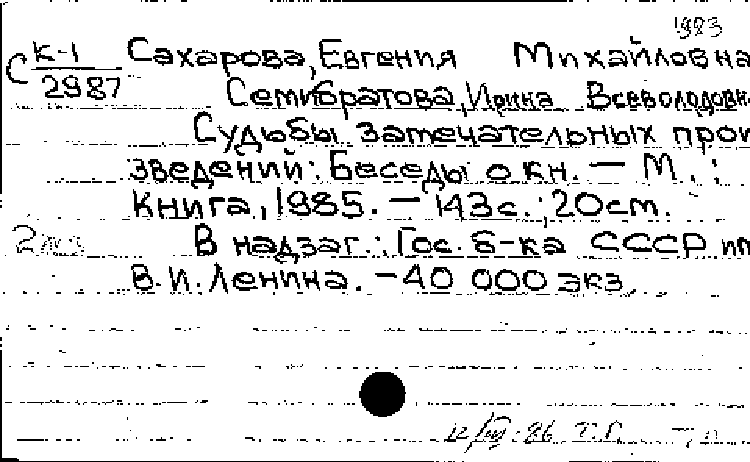 1983
С К-1 Сахарова, Евгения Михайловна
2987
Семибратова, Ирина Всеволодовн
Судьбы замечательных прои
зведений: Беседы о кн. — М. :
Книга, 1985. — 143с.; 20см.
2 экз В надзаг.: Гос. б-ка СССР им
В. И. Ленина. — 40 000 экз